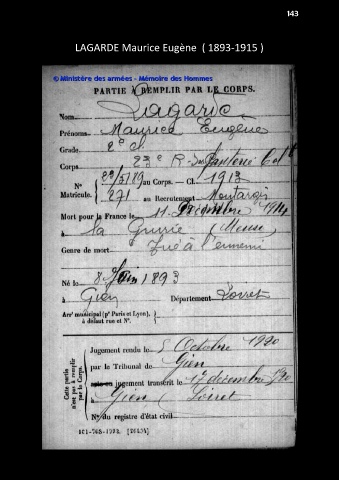 143
LAGARDE Maurice Eugène ( 1893-1915 )
© Ministère des armées - Mémoire des Hommes
PARTIE À REMPLIR PAR LE CORPS.
Nom Lagarde
Prénoms Maurice Eugène
Grade 2e cl.
Corps 23e R. Infanterie Col
N° au Corps. — Cl. 1913
Matricule. 271 au Recrutement Montargis
Mort pour la France le 11 Décembre 1914
à la Grurie (Meuse)
Genre de mort Tué à l'ennemi
Né le 8 1893
à Gien Département Loiret
Arr' municipal (p' Paris et Lyon),
à défaut rue et N°.
Cette partie
n'est pas à remplir
par le Corps.
Jugement rendu le 5 Octobre 1920
par le Tribunal de Gien
acte ou jugement transcrit le 17 décembre 1920
à Gien Loiret
N° du registre d'état civil
101-708-1922. [26434]